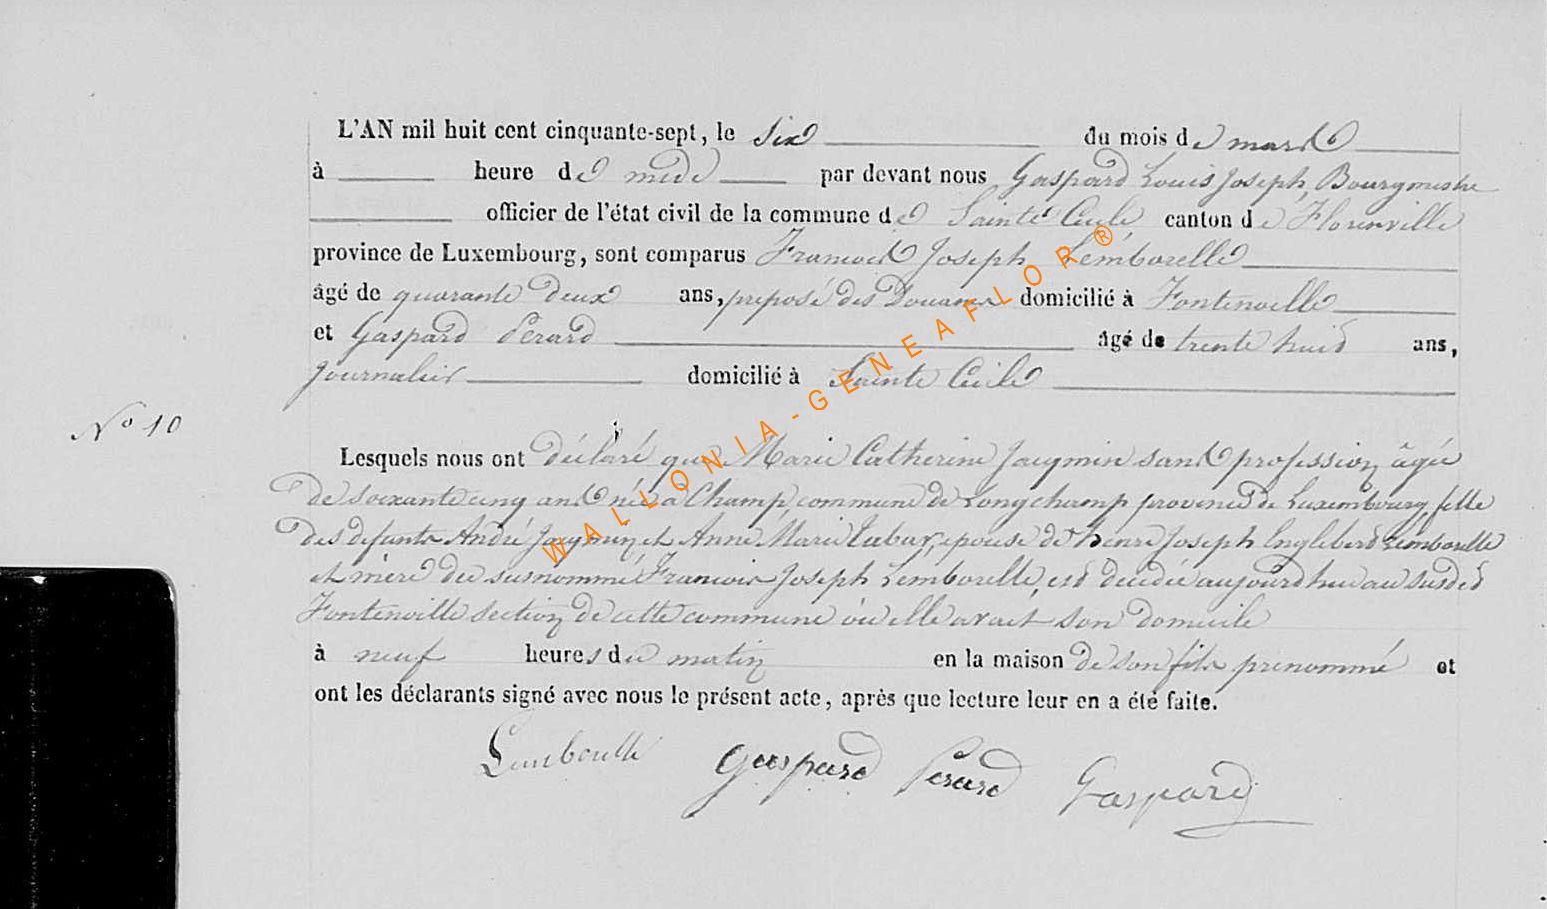 L'AN mil huit cent cinquante-sept, le six du mois de mars
à heure de midi par devant nous Gaspard Louis Joseph, Bourgmestre
officier de l'état civil de la commune de Sainte Cécile canton de Florenville
province de Luxembourg, sont comparus François Joseph Lemborelle
âgé de quarante deux ans, préposé des Douanes domicilié à Fontenoille
et Gaspard Perard âgé de trente huit ans,
journalier domicilié à Sainte Cécile
No 10
Lesquels nous ont déclaré que Marie Catherine Jacqmin sans profession âgée
de soixante cinq ans née à Champ, commune de Longchamp province de Luxembourg, fille
des défunts André Jacqmin et Anne Marie épouse de henri Joseph Englebert Lemborelle
et mère du susnommé François Joseph Lemborelle, est décédée aujourd'hui au susdit
Fontenoille section de cette commune où elle avait son domicile
à neuf heures du matin en la maison de son fils prénommé et
ont les déclarants signé avec nous le présent acte, après que lecture leur en a été faite.
Lemborelle Gaspard Perard Gaspard
WALLONIA-GENEAFLOR®